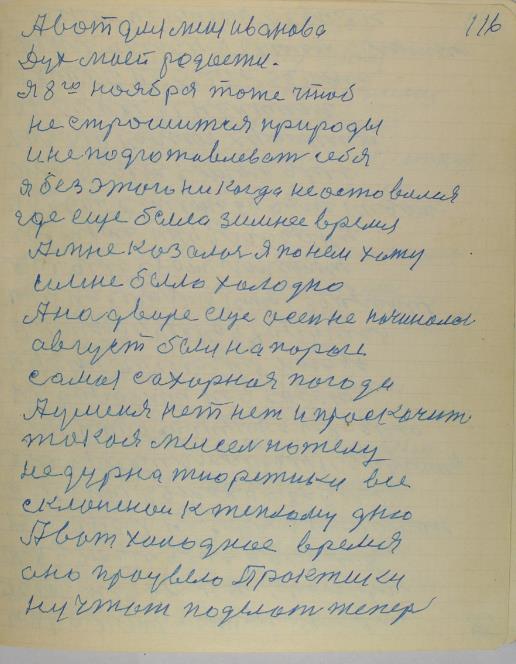 116
А вот для меня иванова
Дух моей родости.
Я 8го ноября тоже чтоб
не строшится природы
и не подготавлеват себя
я без этого никогда не оставался
где еще была зимнее время
А мне казалоя я по нем хожу
и мне было холодно
А на дворе еще осен не починалас
август был на пороги
самая сахорная погода
А у меня нет нет и проскочит
такая мысел по телу
не дурна тиоретики все
склонной к теплому дню
А вот холодное время
оно проувело Практики
ну чтот поделат тепер